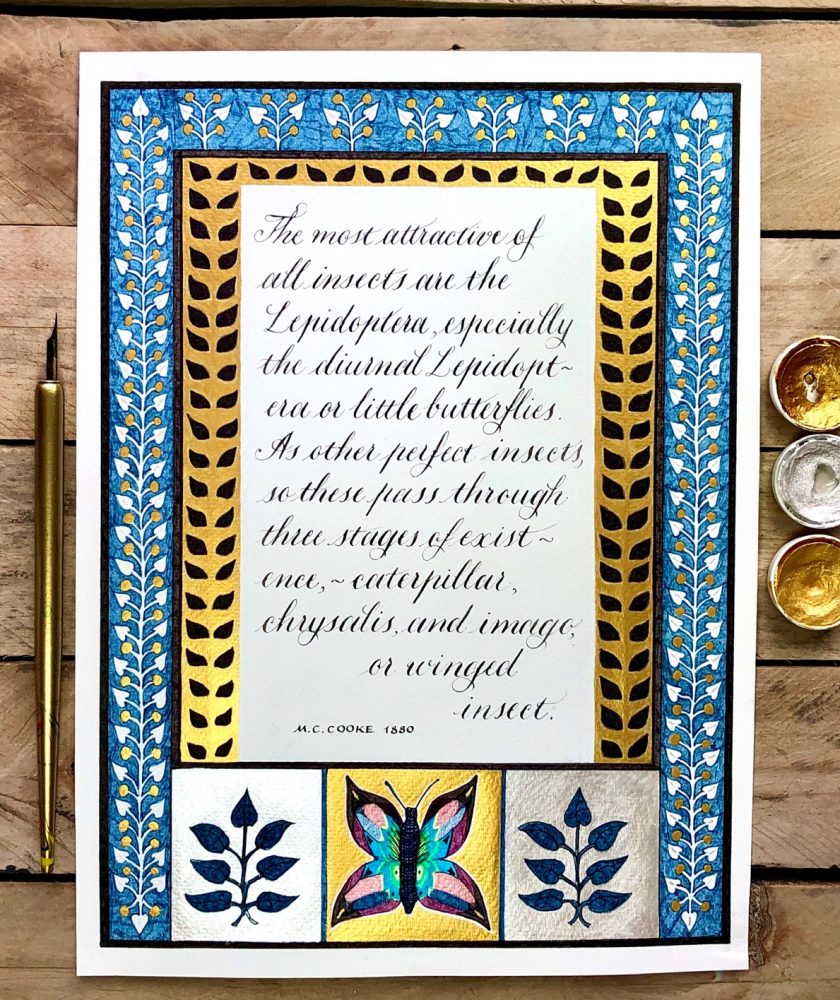 The most attractive of
all insects are the
Lepidoptera, especially
the diurnal Lepidopt~
era or little butterflies.
As other perfect insects,
so these pass through
three stages of exist~
ence,~caterpillar,
chrysalis, and imago,
or winged
insect.
M.C. COOKE 1880